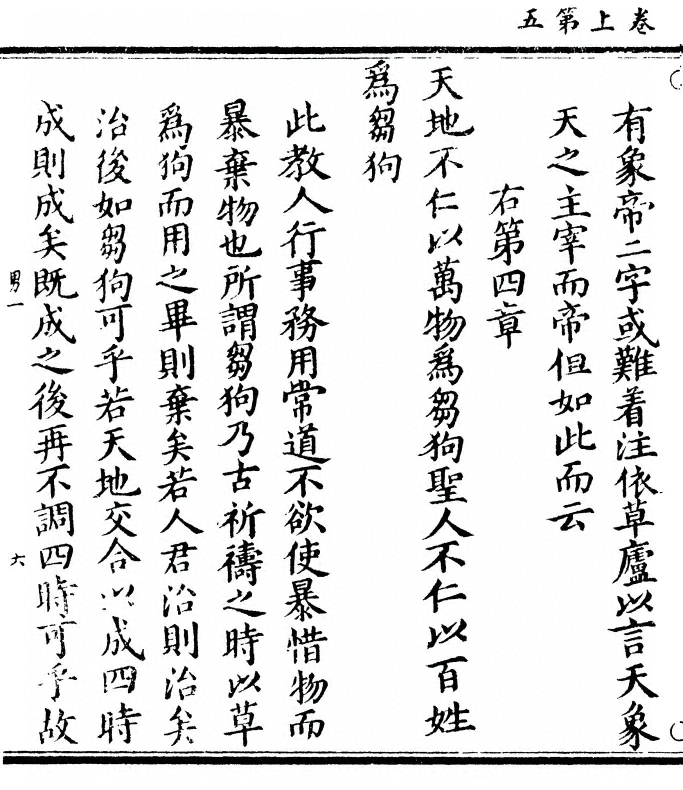 卷上第五
有象帝二字或難着注依草廬以言天象
天之主宰而帝但如此而云
右第四章
天地不仁以萬物爲芻狗聖人不仁以百姓
爲芻狗
此教人行事務用常道不欲使暴惜物而
暴棄物也所謂芻狗乃古祈禱之時以草
爲狗而用之畢則棄矣若人君治則治矣
治後如芻狗可乎若天地交合以成四時
成則成矣既成之後再不調四時可乎故
男一
六